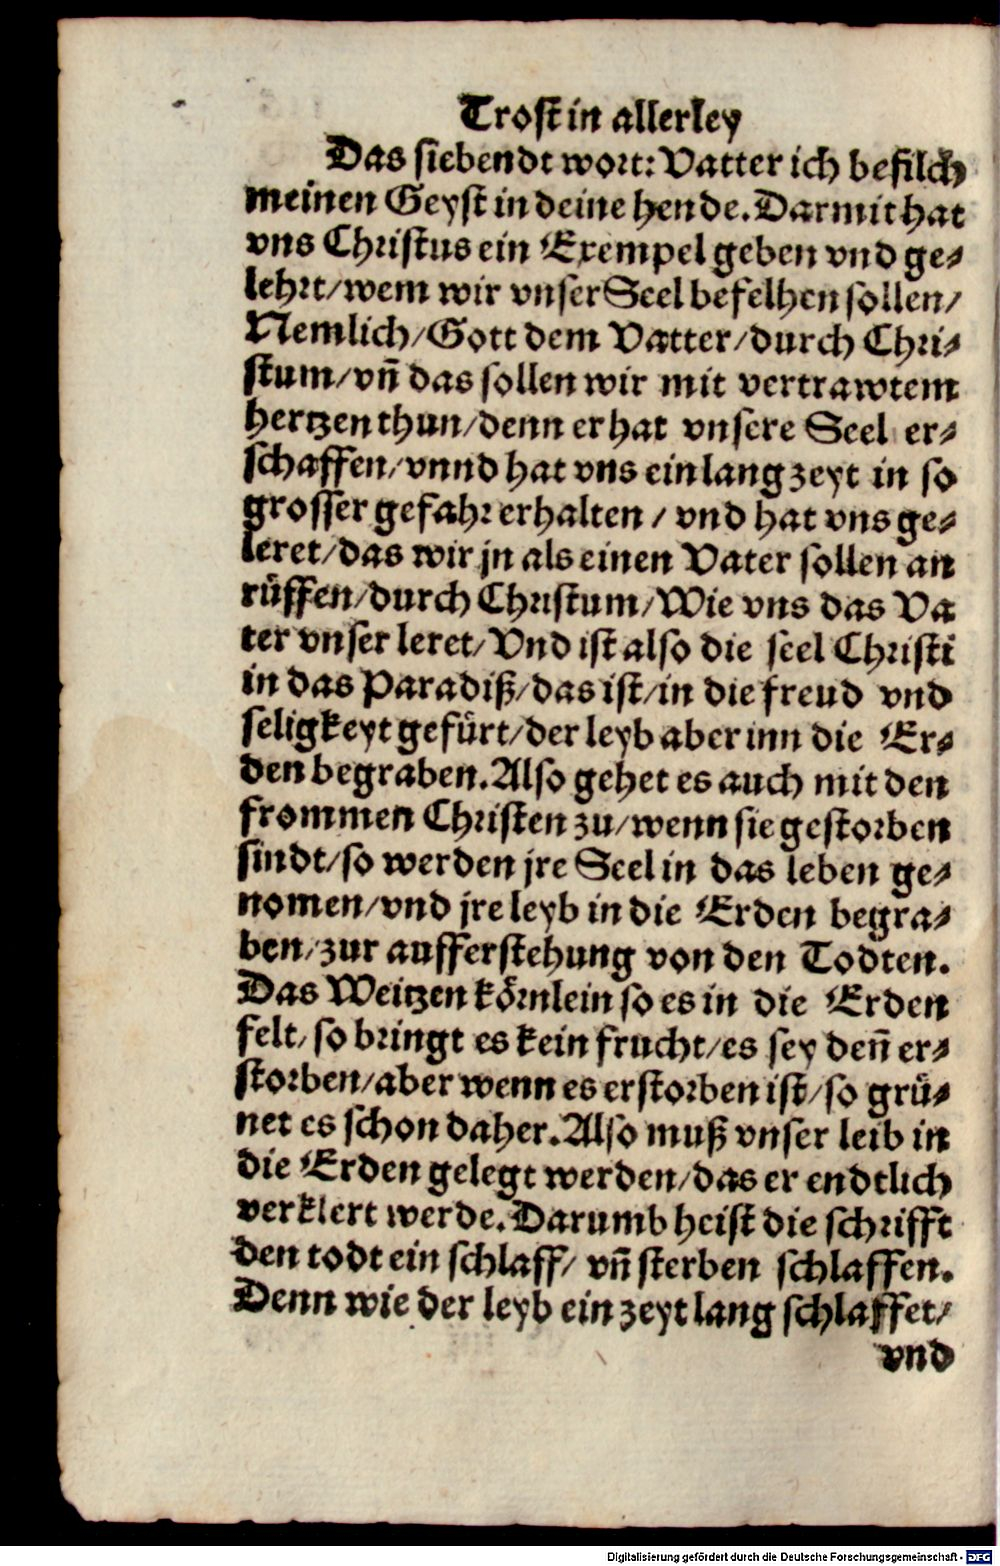 Trost in allerley
Das siebendt wort: Vatter ich befilch
meinen Geyst in deine hende. Darmit hat
vns Christus ein Exempel geben vnd ge⸗
lehrt/wem wir vnser Seel befelhen sollen/
Nemlich/Gott dem Vatter/durch Chri⸗
stum/vñ das sollen wir mit vertrawtem
hertzen thun/denn er hat vnsere Seel er⸗
schaffen/vnnd hat vns ein lang zeyt in so
grosser gefahr erhalten / vnd hat vns ge⸗
leret/das wir jn als einen Vater sollen an
rüffen/durch Christum/Wie vns das Va
ter vnser leret/Vnd ist also die seel Christi
in das Paradiß/das ist/in die freud vnd
seligkeyt gefürt/der leyb aber inn die Er⸗
den begraben. Also gehet es auch mit den
frommen Christen zu/wenn sie gestorben
sindt/so werden jre Seel in das leben ge⸗
nomen/vnd jre leyb in die Erden begra⸗
ben/zur aufferstehung von den Todten.
Das Weitzen körnlein so es in die Erden
felt/so bringt es kein frucht/es sey deñ er⸗
storben/aber wenn es erstorben ist/so grü⸗
net es schon daher. Also muß vnser leib in
die Erden gelegt werden/das er endtlich
verklert werde. Darumb heist die schrifft
den todt ein schlaff/ vñ sterben schlaffen.
Denn wie der leyb ein zeyt lang schlaffet/
vnd
Digitalisierung gefördert durch die Deutsche Forschungsgemeinschaft - DFG